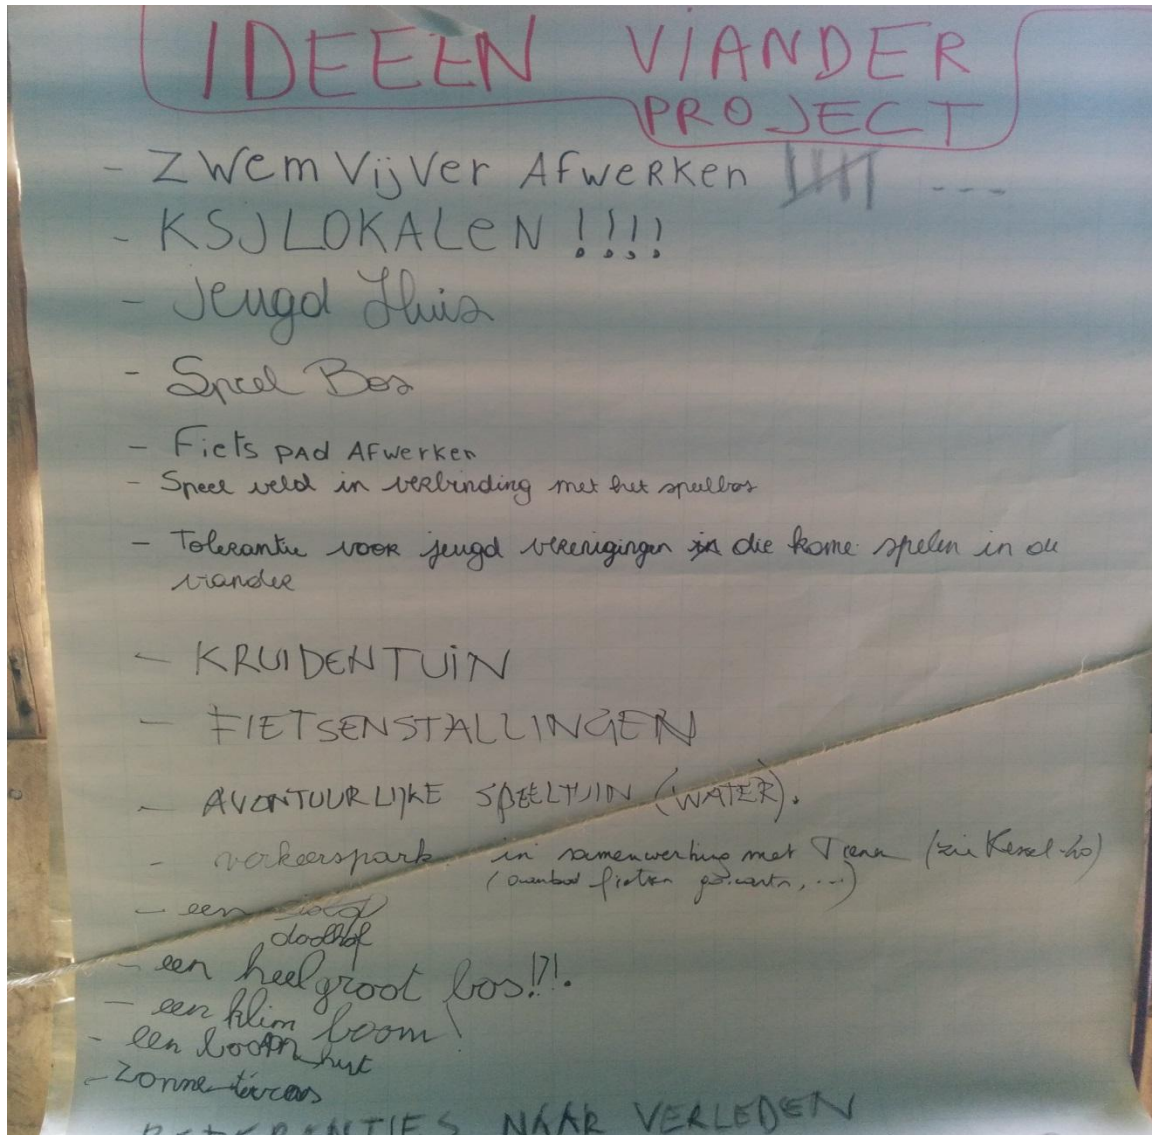 IDEEEN VIANDER
PROJECT
- ZWEM VijVer AFWERKEN ---
- KSJ LOKALEN !!!!
- Jeugd Huis
- Speel Bos
- Fiets PAD AFwerken
- Speel veld in verbinding met het speelbos
- Tolerantie voor jeugd verenigingen die kome spelen in de
viander
- KRUIDENTUiN
- FIETSENSTALLINGEN
- AVONTUURLIJKE SPEELTUIN (WATER).
- verkeerspark in samenwerking met Tienen (zie Kessel-Lo)
(aanbod fietsen gocarts, ...)
- een
doolhof
- een heel groot bos!?!.
- een klim boom!
- een boomhut
- Zonne-terras
REFERANTIES NAAR VERLEDEN